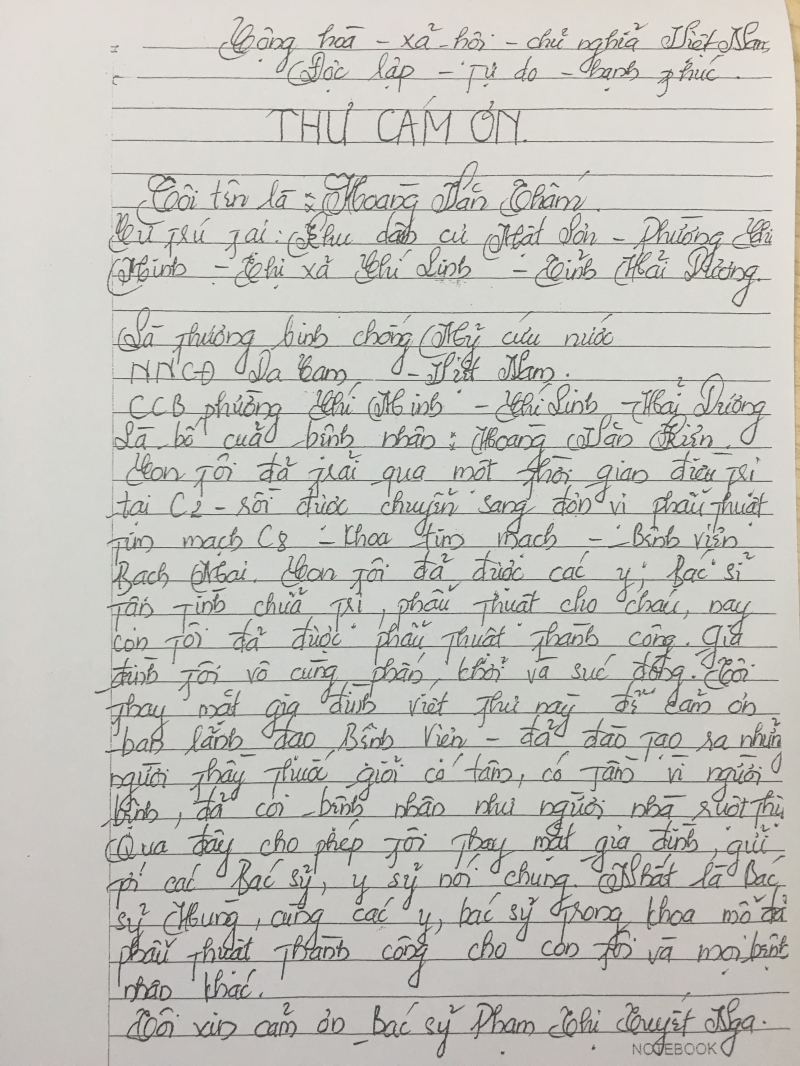 Cộng hoà - xả hội - chử nghiả Việt Nam
Độc lập - Tự do - hạnh phúc.
THƯ CẢM ƠN.
Tôi tên là : Hoàng Văn Thắm.
Cư trú tại : Khu dân cư Mật Sơn - Phường Chí
Minh - Thị xả Chí Linh - Tỉnh Hải Dương.
Là Thương binh chống Mỹ cứu nước
NNCĐ Da Cam - Việt Nam.
CCB phường Chí Minh - Chí Linh - Hải Dương
Là bố cuả bệnh nhân : Hoàng Văn Hiển.
Con tôi đả trải qua một thời gian điều trị
tại C2 - rồi được chuyển sang đơn vị phẩu thuật
Tim mạch C8 - Khoa tim mạch - Bệnh viện
Bạch Mai. Con tôi đả được các y, Bác sỉ
Tận tình chửa trị, phẩu thuật cho cháu, nay
con tôi đả được phẩu thuật thành công. Gia
đình tôi vô cùng phấn khởi và xúc động. Tôi
Thay mặt gia đình viết thư này để cảm ơn
ban lảnh đạo Bệnh Viện - đả đào tạo ra nhửng
người Thầy Thuốc giỏi có tâm, có tầm vì người
bệnh, đả coi bệnh nhân như người nhà ruột thịt.
Qua đây cho phép tôi thay mặt gia đình, gửi
tới các Bác sỹ, y sỹ nói chung. Nhất là Bác
sỹ Hùng, cùng các y, bác sỹ trong khoa mổ đả
phẩu thuật thành công cho con tôi và mọi bệnh
nhân khác.
Tôi xin cảm ơn Bác sỹ Phạm Thị Tuyết Nga.
NOTEBOOK